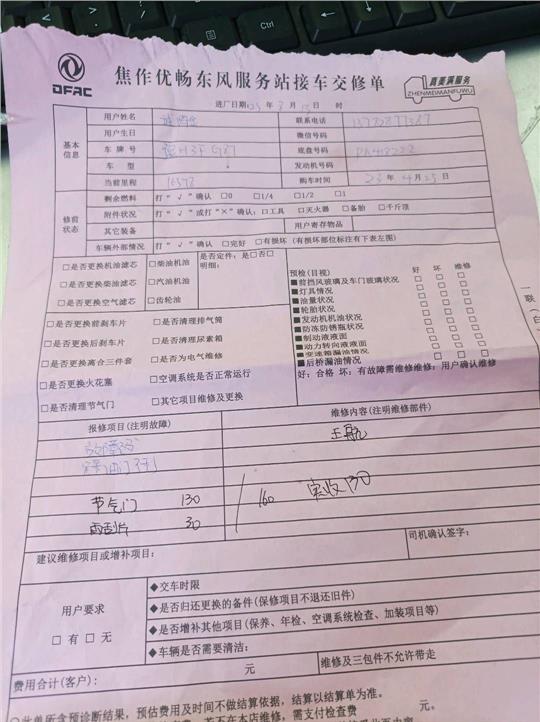 DFAC
焦作优畅东风服务站接车交修单
真美满服务
ZHENMEIMANFUWU
进厂日期 年 月 日 时
基本信息
用户姓名 联系电话
用户生日 微信号码
车牌号 底盘号码
车型 发动机号码
当前里程 购车时间 23年4月25日
修前状态
剩余燃料 打“√”确认 □0 □1/4 □1/2 □1
附件状况 打“√”或打“×”确认:□工具 □灭火器 □备胎 □千斤顶
其它装备 用户寄存物品
车辆外部情况 打“√”确认 □完好 □有损坏 (有损坏部位标注有下表左图)
□是否更换机油滤芯 □柴油机油 是否定件:是□否□
明细:
□是否更换柴油滤芯 □汽油机油
□是否更换空气滤芯 □齿轮油
□是否更换前刹车片 □是否清理排气筒
□是否更换后刹车片 □是否清理尿素箱
□是否更换离合三件套 □是否为电气维修
□是否更换火花塞 □空调系统是否正常运行
□是否清理节气门 □其它项目维修及更换
预检(目视) 好 坏 维修
■前挡风玻璃及车门玻璃状况 □ □ □
■灯具情况 □ □ □
■油量状况 □ □ □
■轮胎状况 □ □ □
■发动机机油状况 □ □ □
■防冻防锈瓶状况 □ □ □
■制动液液面 □ □ □
■动力转向液液面 □ □ □
■变速箱漏油情况 □ □ □
■后桥漏油情况 □ □ □
好:合格 坏:有故障需维修维修:用户确认维修
报修项目(注明故障) 维修内容(注明维修部件)
王航
节气门 130 / 160 实收130
雨刮片 30
建议维修项目或增补项目: 司机确认签字:
用户要求
□有 □无
◆交车时限
◆是否归还更换的备件(保修项目不退还旧件)
◆是否增补其他项目(保养、年检、空调系统检查、加装项目等)
◆车辆是否需要清洁:
费用合计(客户): 元 维修及三包件不允许带走
此单所含预诊断结果,预估费用及时间不做结算依据,结算以结算单为准。
若不在本店维修,需支付检查费 元。
一联